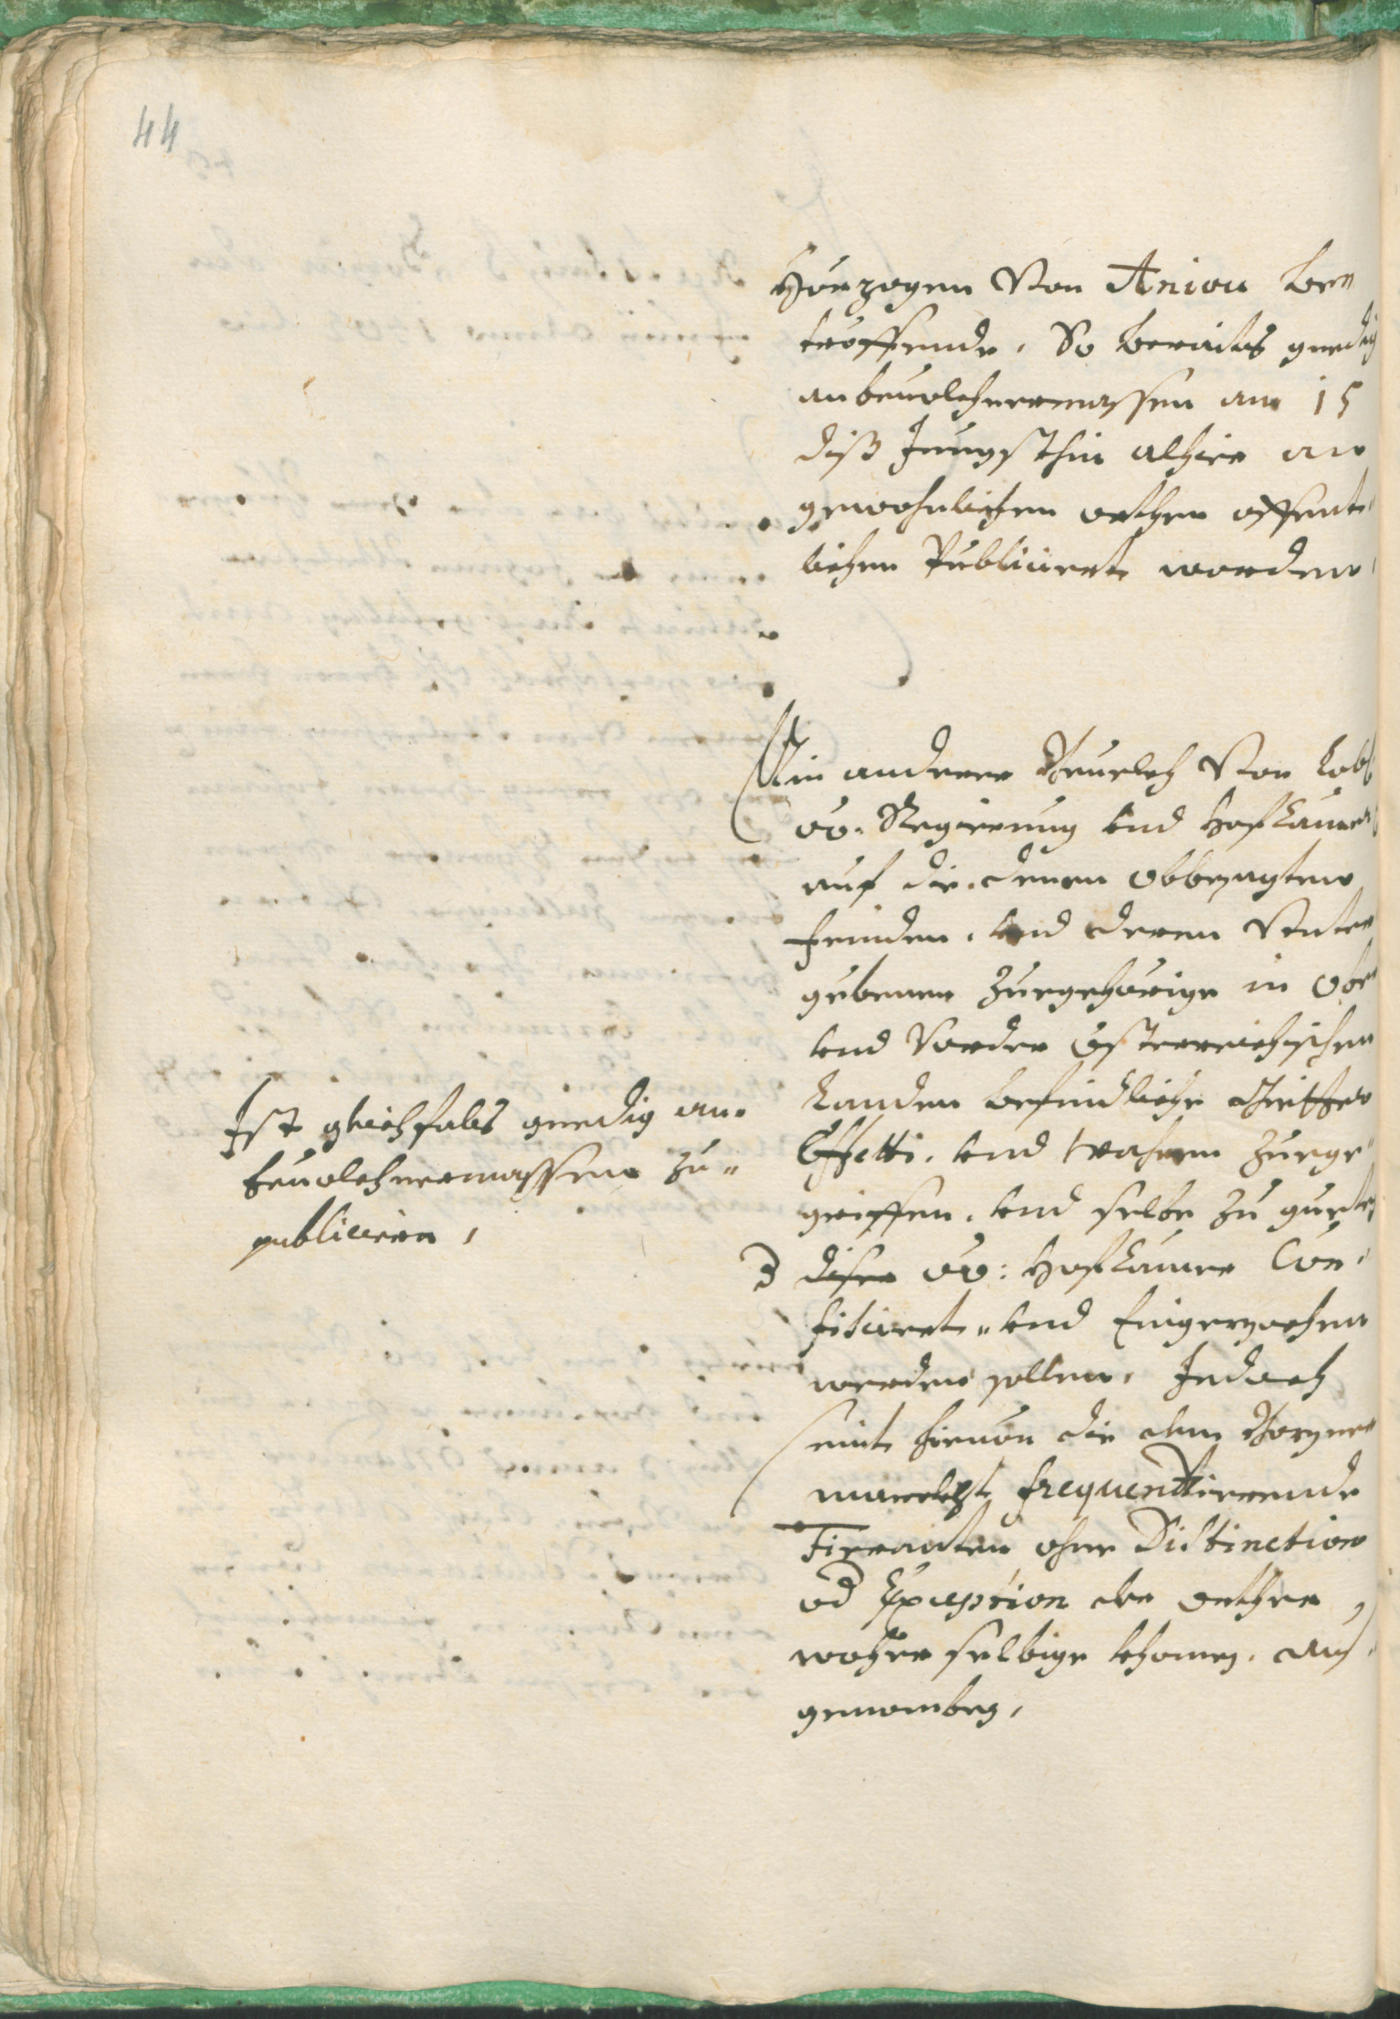 44
Herzogen Von Aniou be¬
treffende, So beraits gnedig
anbeuolchnermassen am 15
diß Jüngsthin alhier an
gewohnlichen orthen offent¬
lichen Publiciert worden,
Ein anderer Beuelch Von Lobl:
oö. Regierung und Hofcamer
auf die denen obbesagten
feinden, und deren Unter
gebenen zuegehörige in Ober
und Vorder Össterreichischen
Landen befindliche
Effetti, und wahren zuege¬
griffen, und selbe zu guetem
diser oö: Hofcamer Con¬
fisciert, und Eingezochen
werden sollen, Jedoch
seint hieruon die dem Bozner
marckht frequentierende
Fieranten ohne Distinction
od Exception der orthen,
woher selbige khomen, auß¬
genomben,
Ist gleichfals gnedig an¬
beuolchnermassen zu¬
publicieren,